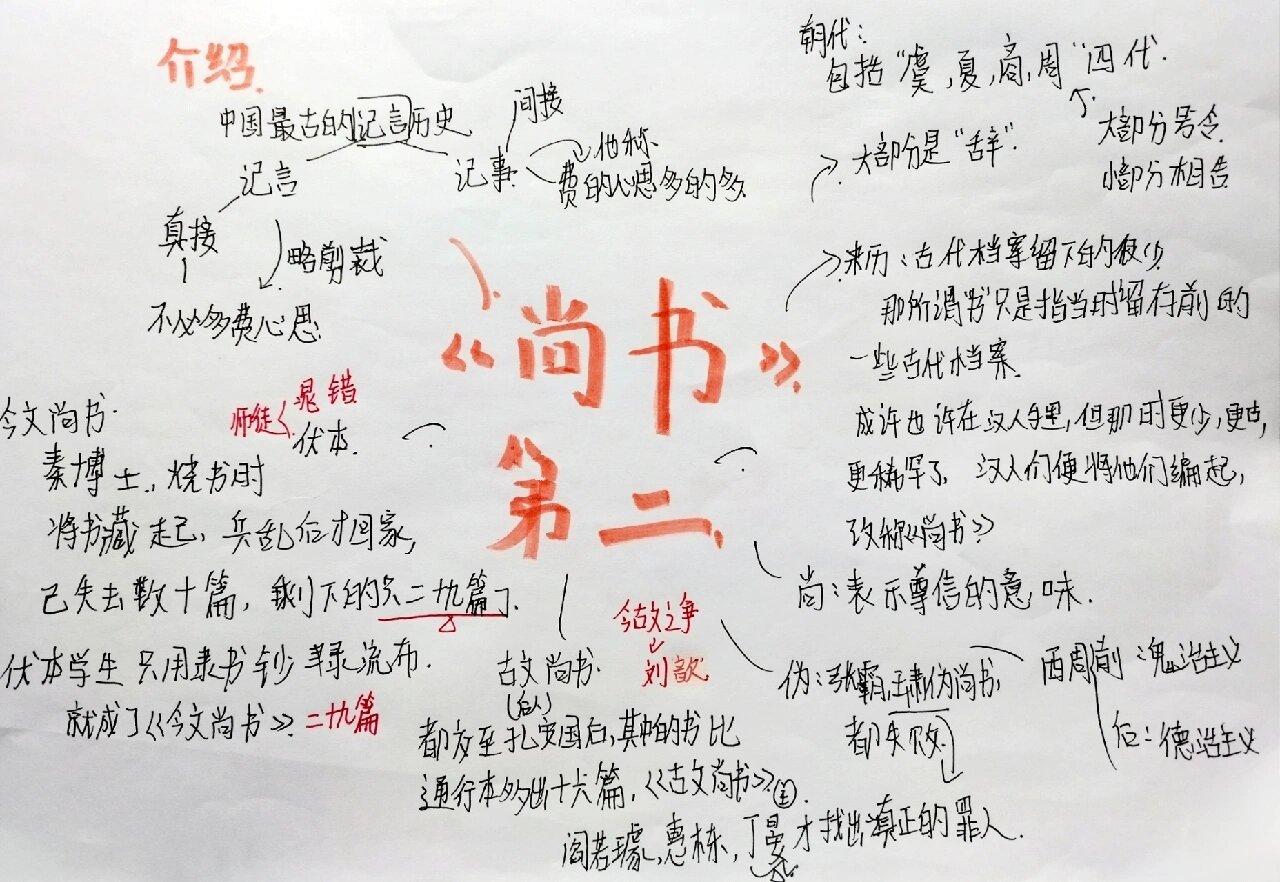 介绍.
中国最古的记言历史
记言
记事.
间接
他称
费的心思多的多.
直接
略剪裁
不必多费心思.
朝代：
包括“虞,夏,商,周”四代.
大部分号令
小部分相告
大部分是“辞”.
来历：古代档案留下的很少
那所谓“书”只是指当时留存前的
一些古代档案.
成许也许在汉人手里,但那时更少,更古,
更稀罕了. 汉人们便将他们编起,
改称《尚书》
尚：表示尊信的意味.
《尚书》
第二.
今文尚书.
师徒
晁错
伏本.
秦博士., 烧书时
将书藏起, 兵乱后才回家,
已失去数十篇, 剩下的只二十九篇了.
伏本学生 只用隶书钞录流布.
就成了《今文尚书》. 二十九篇
今古文之争
刘歆
古文尚书.
(后人)
都友至孔安国后,其中的书比
通行本多出十六篇, 《古文尚书》.
伪：张霸,王肃伪尚书,
都失败.
西周前：鬼治主义
后：德治主义
阎若璩,惠栋,丁晏才找出真正的罪人.